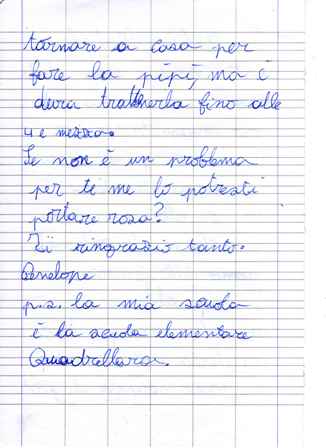 tornare a casa per
fare la pipí, ma ci
devra trattenerla fino alle
4 e mezza.
Se non é un problema
per te me lo potresti
portare rosa?
Ti ringrazio tanto.
Penelope
p.s. la mia scuola
é la scuola elementare